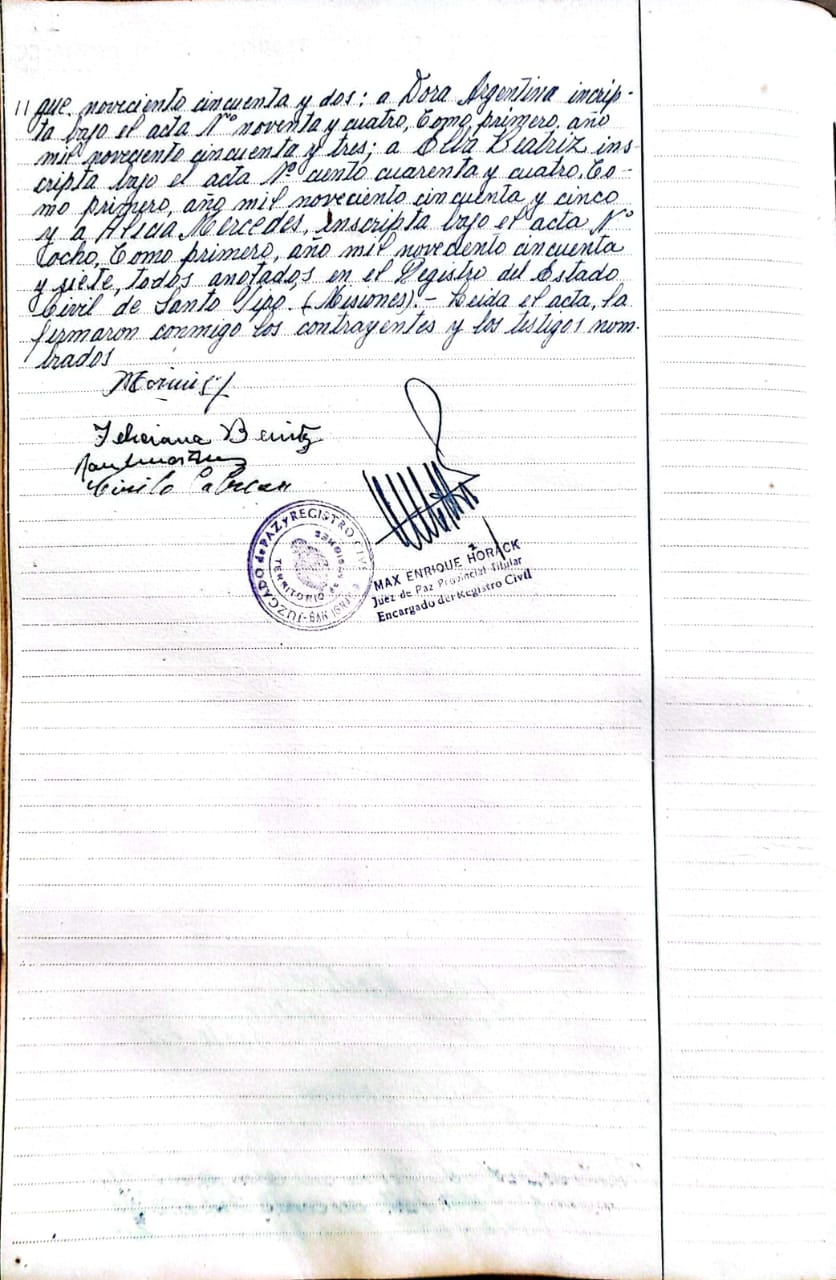 que noveciento cincuenta y dos; a Dora Argentina inscrip-
ta bajo el acta Nº noventa y cuatro, Tomo primero, año
mil noveciento cincuenta y tres; a Elva Beatriz ins-
cripta bajo el acta Nº ciento cuarenta y cuatro, To-
mo primero, año mil noveciento cincuenta y cinco
y a Alicia Mercedes, inscripta bajo el acta Nº
ocho, Tomo primero, año mil noveciento cincuenta
y siete, todos anotados en el Registro del Estado
Civil de Santo Pipó. (Misiones).- Leida el acta, la
firmaron conmigo los contrayentes y los testigos nom-
brados
Feliciana Benitez
Cirilo Cabrera
JUZGADO de PAZ y REGISTRO CIVIL
TERRITORIO de MISIONES
SAN IGNACIO
MAX ENRIQUE HORACK
Juez de Paz Provincial Titular
Encargado del Registro Civil